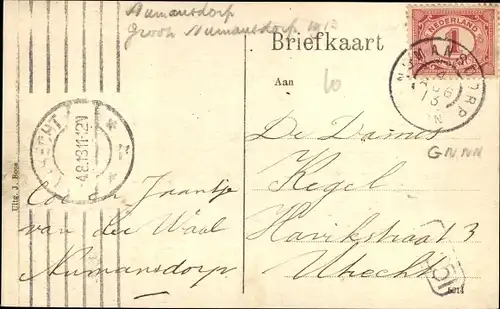 Numansdorp
Groot Numansdorp 1913
Briefkaart
NEDERLAND
1
NUMANSDORP
Aan
10
De Dames
Kegel
Havikstraat 3
Utrecht
GN.NN
UTRECHT
4.8.13.11-12
Coe en Jaantje
van der Waal
Numansdorp
Uitg. J. Boos
51
5211